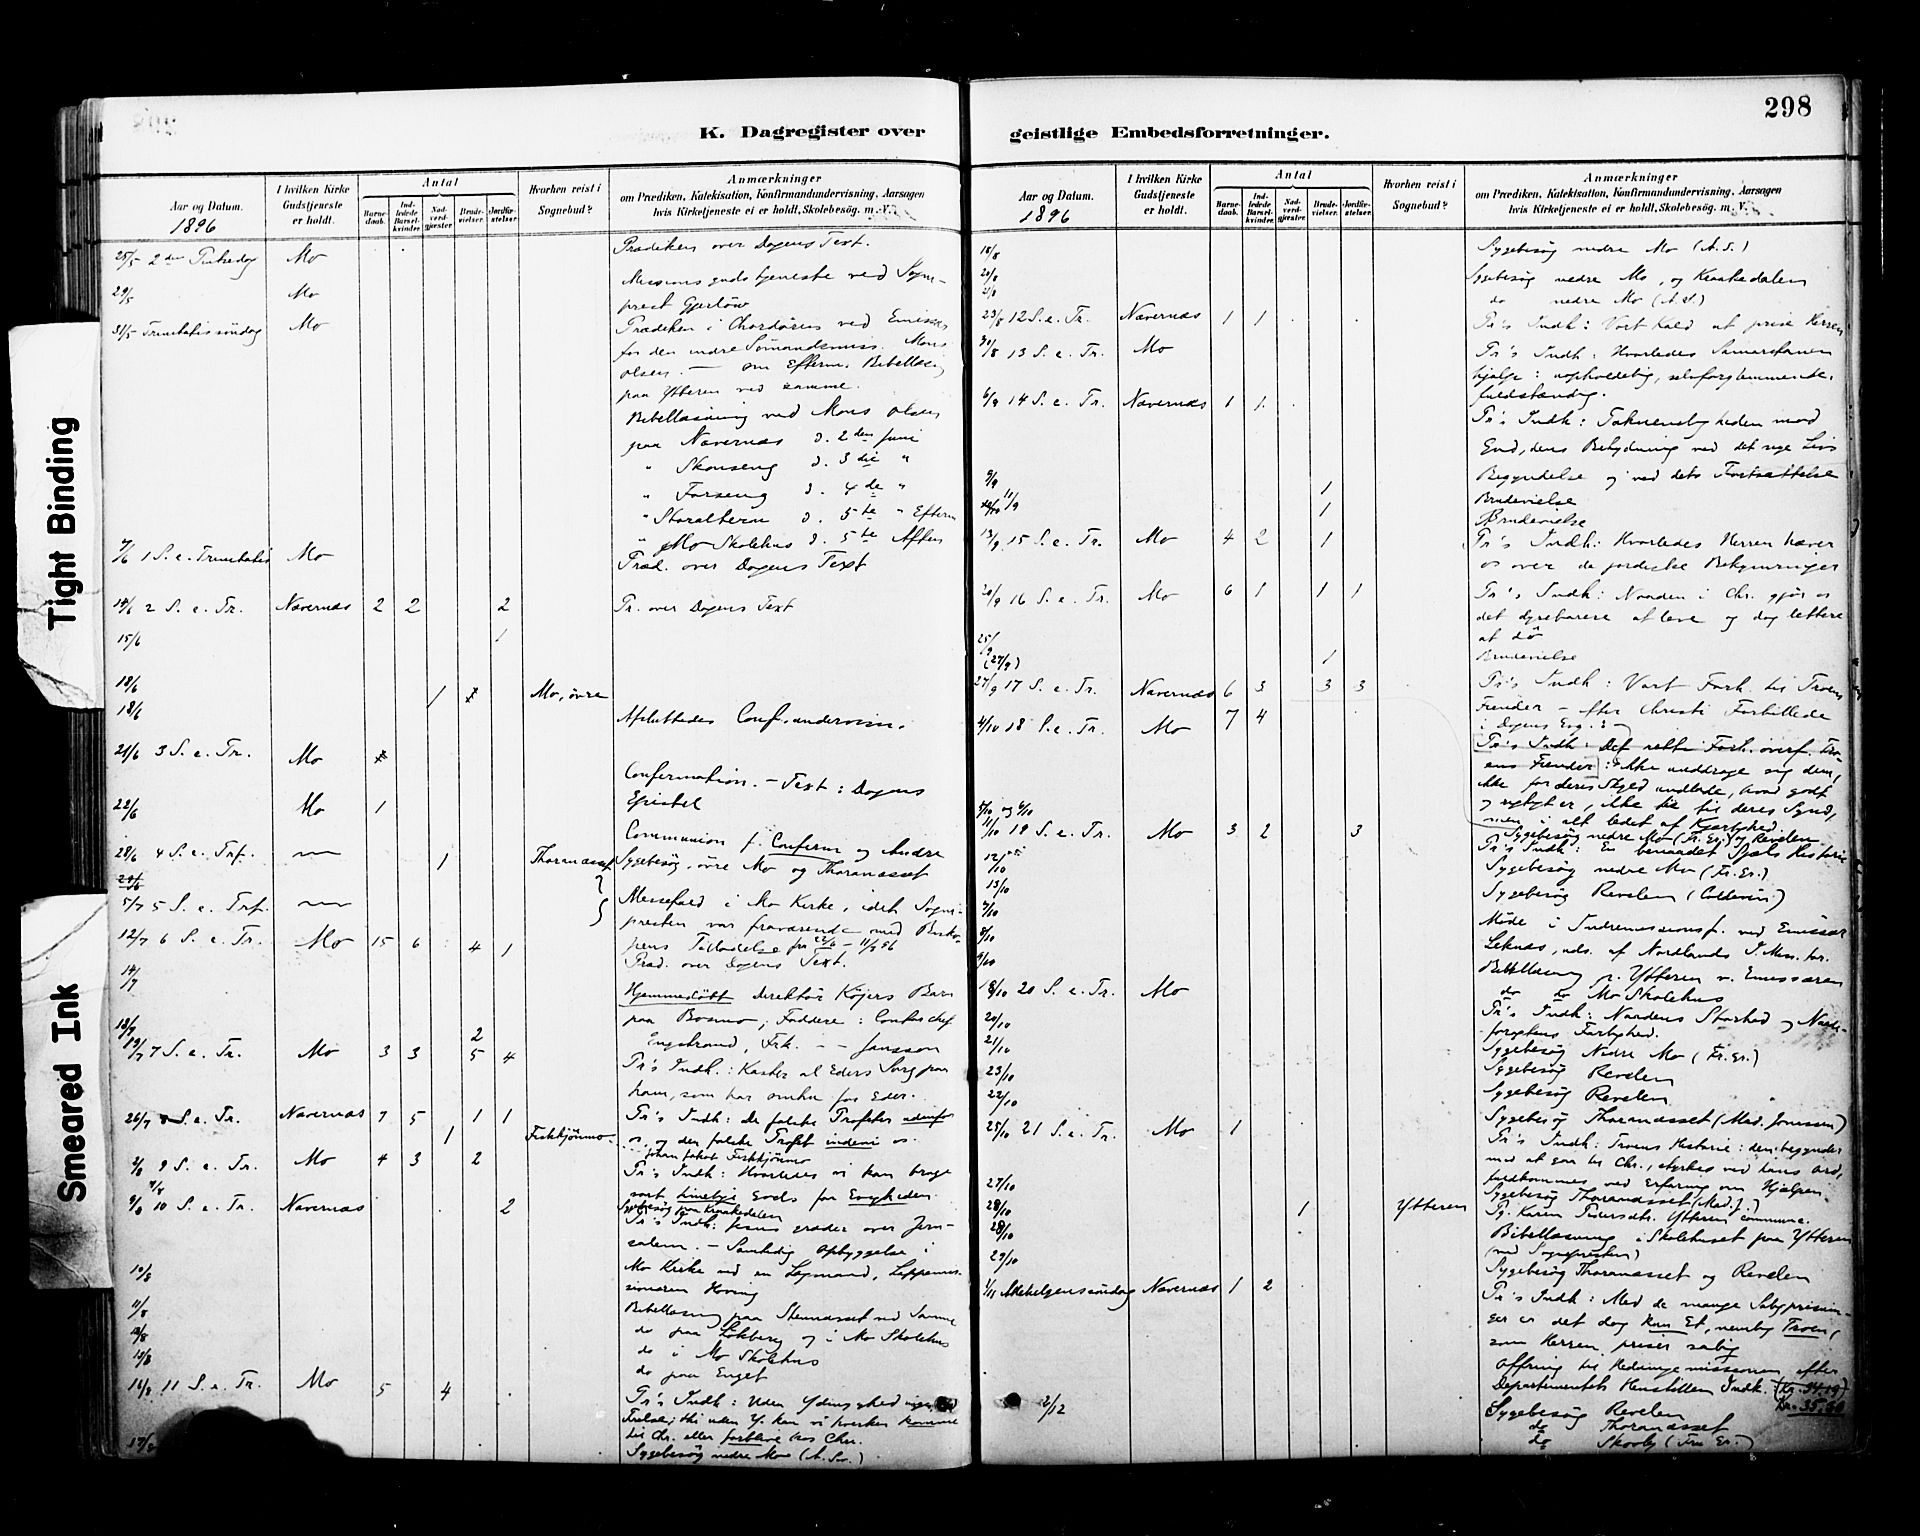 298
K. Dagregister over geistlige Embedsforretninger.
Tight Binding
Smeared Ink
Aar og Datum.
1896
I hvilken Kirke Gudstjeneste er holdt.
Antal
Barnedaab.
Indledede Barselkvinder.
Nadverdgjester
Brudevielser.
Jordfæstelser.
Hvorhen reist i Sognebud?
Anmærkninger
om Prædiken, Katekisation, Konfirmandundervisning, Aarsagen
hvis Kirketjeneste ei er holdt, Skolebesøg. m. V.
25/5 2den Pintsedag Mo Prædiken over Dagens Text.
29/5 Mo Missions gudstjeneste ved Sogne-
prest Gjerløw
31/5 Trinitatissöndag Mo Prædiken i Chordøren ved Emissær
for den indre Sömandsmiss. Mons
Olsen. — om Efterm. Bibellæsn
paa Ytteren ved samme.
Bibellæsning ved Mons Olsen
paa Nævernæs d. 2den Juni
" Skonseng d. 3die "
" Forseng d. 4de "
" Storalteren d. 5te " Efterm
" Mo Skolehus d. 5te Aften
7/6 1 S. e. Trinitatis Mo Præd. over Dagens Text
14/6 2 S. e. Tr. Nævernæs 2 2 2 Pr. over Dagens Text
15/6 1
18/6 1 Mo, övre
18/6 Afsluttedes Conf.undervisn.
21/6 3 S. e. Tr. Mo
Confirmation. — Text: Dagens
Epistel
22/6 Mo 1
Communion f. Conferm og Andre
28/6 4 S. e. Tr. 1 Thoranæsset Sygebesög, övre Mo og Thoranæsset
5/7 5 S. e. Tr. Messefald i Mo Kirke, idet Sogne-
presten var fraværende med Bisko-
12/7 6 S. e. Tr. Mo 15 6 4 1 pens Tilladelse fra 22/6 – 11/7 96
Præd. over Dagens Text.
14/7 Hjemmedöbt direktör Köjers Barn
paa Bosmo; Faddere:
18/7 2 Engstrand, Frk. — — Jansson
19/7 7 S. e. Tr. Mo 3 3 5 4 Pr's Indh.: Kaster al Eders Sorg paa
ham, som har omhu for Eder.
26/7 8 S. e. Tr. Nævernæs 7 5 1 1 Pr's Indh: De falske Profeter udenfor
1 Fisktjönmo os, og den falske Profet indeni os.
Johan Jakob Fisktjönmo
2/8 9 S. e. Tr. Mo 4 3 2 Pr's Indh: Hvorledes vi kan bruge
7/8 vort timelige Gods for Evigheden.
Sygebesög paa Kraakedalen
9/8 10 S. e. Tr. Nævernæs 2 Pr's Indh: Jesus græder over Jeru-
salem. — Samtidig Opbyggelse i
10/8 Mo Kirke ved en Lægmand, Lappemis-
sionæren Hoving
11/8 Bibellæsning paa Stennæsset ved Samme
12/8 do paa Lökberg og i Mo Skolehus
13/8 do i Mo Skolehus
do paa Enget
16/8 11 S. e. Tr. Mo 5 4 Pr's Indh: Uden Ydmyghed ingen
Frelse, thi uden Y. kan vi hverken komme
til Chr. eller forblive hos Chr.
17/8 Sygebesög nedre Mo
Aar og Datum.
1896
I hvilken Kirke Gudstjeneste er holdt.
Antal
Barnedaab.
Indledede Barselkvinder.
Nadverdgjester
Brudevielser.
Jordfæstelser.
Hvorhen reist i Sognebud?
Anmærkninger
om Prædiken, Katekisation, Konfirmandundervisning, Aarsagen
hvis Kirketjeneste ei er holdt, Skolebesøg. m. V.
18/8 Sygebesög nedre Mo (A. S.)
20/8 Sygebesög nedre Mo, og Kraakedalen
21/8 do nedre Mo (A. S.)
23/8 12 S. e. Tr. Nævernæs 1 1 Pr's Indh: Vort Kald at prise Herren
30/8 13 S. e. Tr. Mo Pr's Indh: Hvorledes Samaritanen
hjalp: uopholdelig, selvforglemmende,
fuldstændig.
6/9 14 S. e. Tr. Nævernæs 1 1 Pr's Indh: Taknemligheden mod
Gud, dens Betydning ved det nye Livs
Begyndelse og ved dets Fortsættelse
9/9 1 Brudevielse
11/9 1 Brudevielse
13/9 15 S. e. Tr. Mo 4 2 1 Pr's Indh: Hvorledes Herren hæver
os over de jordiske Bekymringer
20/9 16 S. e. Tr. Mo 6 1 1 1 Pr's Indh: Naaden i Chr. gjör os
det dyrebarere at leve og dog lettere
at dö
25/9
(27/9) 1 Brudevielse
27/9 17 S. e. Tr. Nævernæs 6 3 3 3 Pr's Indh: Vort Forh. til Troens
Fiender — efter Christi Forbillede
i Dagens Evg.
4/10 18 S. e. Tr. Mo 7 4 Pr's Indh: Det rette Forh. overf. Tro-
ens Fiender: Ikke unddrage sig dem,
ikke for deres Skyld undlade, hvad godt
og nyttigt er, ikke tie til deres Synd,
men i alt ledet af Kjærlighed.
5/10 og 6/10 Sygebesög nedre Mo (Fr. Er.) og Revelen
11/10 19 S. e. Tr. Mo 3 2 3 Pr's Indh: En benaadet Sjæls Historie
12/10 Sygebesög nedre Mo (Fr. Er.)
13/10 Sygebesög Revelen
7/10 Möde i Indremissionsf. ved Emissær
8/10 Leknæs, uds. af Nordlands I. Miss. for.
9/10 Bibellæsning p. Ytteren v. Emissæren
do Mo Skolehus
18/10 20 S. e. Tr. Mo Pr's Indh: Naadens Storhed og Naade-
forgtens Farlighed.
20/10 Sygebesög Nedre Mo (Fr. Er.)
21/10 Sygebesög Revelen
23/10 Sygebesög Revelen
22/10 Sygebesög Thoranæsset (Mad. Jonassen)
25/10 21 S. e. Tr. Mo 1 Pr's Indh: Troens Historie: den begynder
med at gaa til Chr., styrkes ved hans Ord,
fuldkommes ved Erfaring om Hjælpen.
27/10 Sygebesög Thoranæsset (Mad. J.)
28/10 1 Ytteren Pg. Karen Pedersdtr. Ytteren commune.
28/10 Bibellæsning i Skolehuset paa Ytteren
(ved Sognepresten)
29/10 Sygebesög Thoranæsset og Revelen
1/11 Allehelgenssöndag Nævernæs 1 2 Pr's Indh: Med de mange Saligprisnin-
ger er det dog kun Et, nemlig Troen,
som Herren priser salig
Offring til Hedningemissionen efter
Departementets Henstillen Indk. (Kr. 34.19)
Kr. 35.60
2/12 Sygebesög Revelen
do Thoranæsset
do Skovly (Fru Er.)